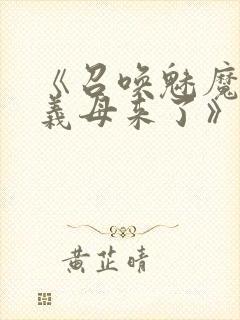 《召唤魅魔
义母来了》
黄芷晴